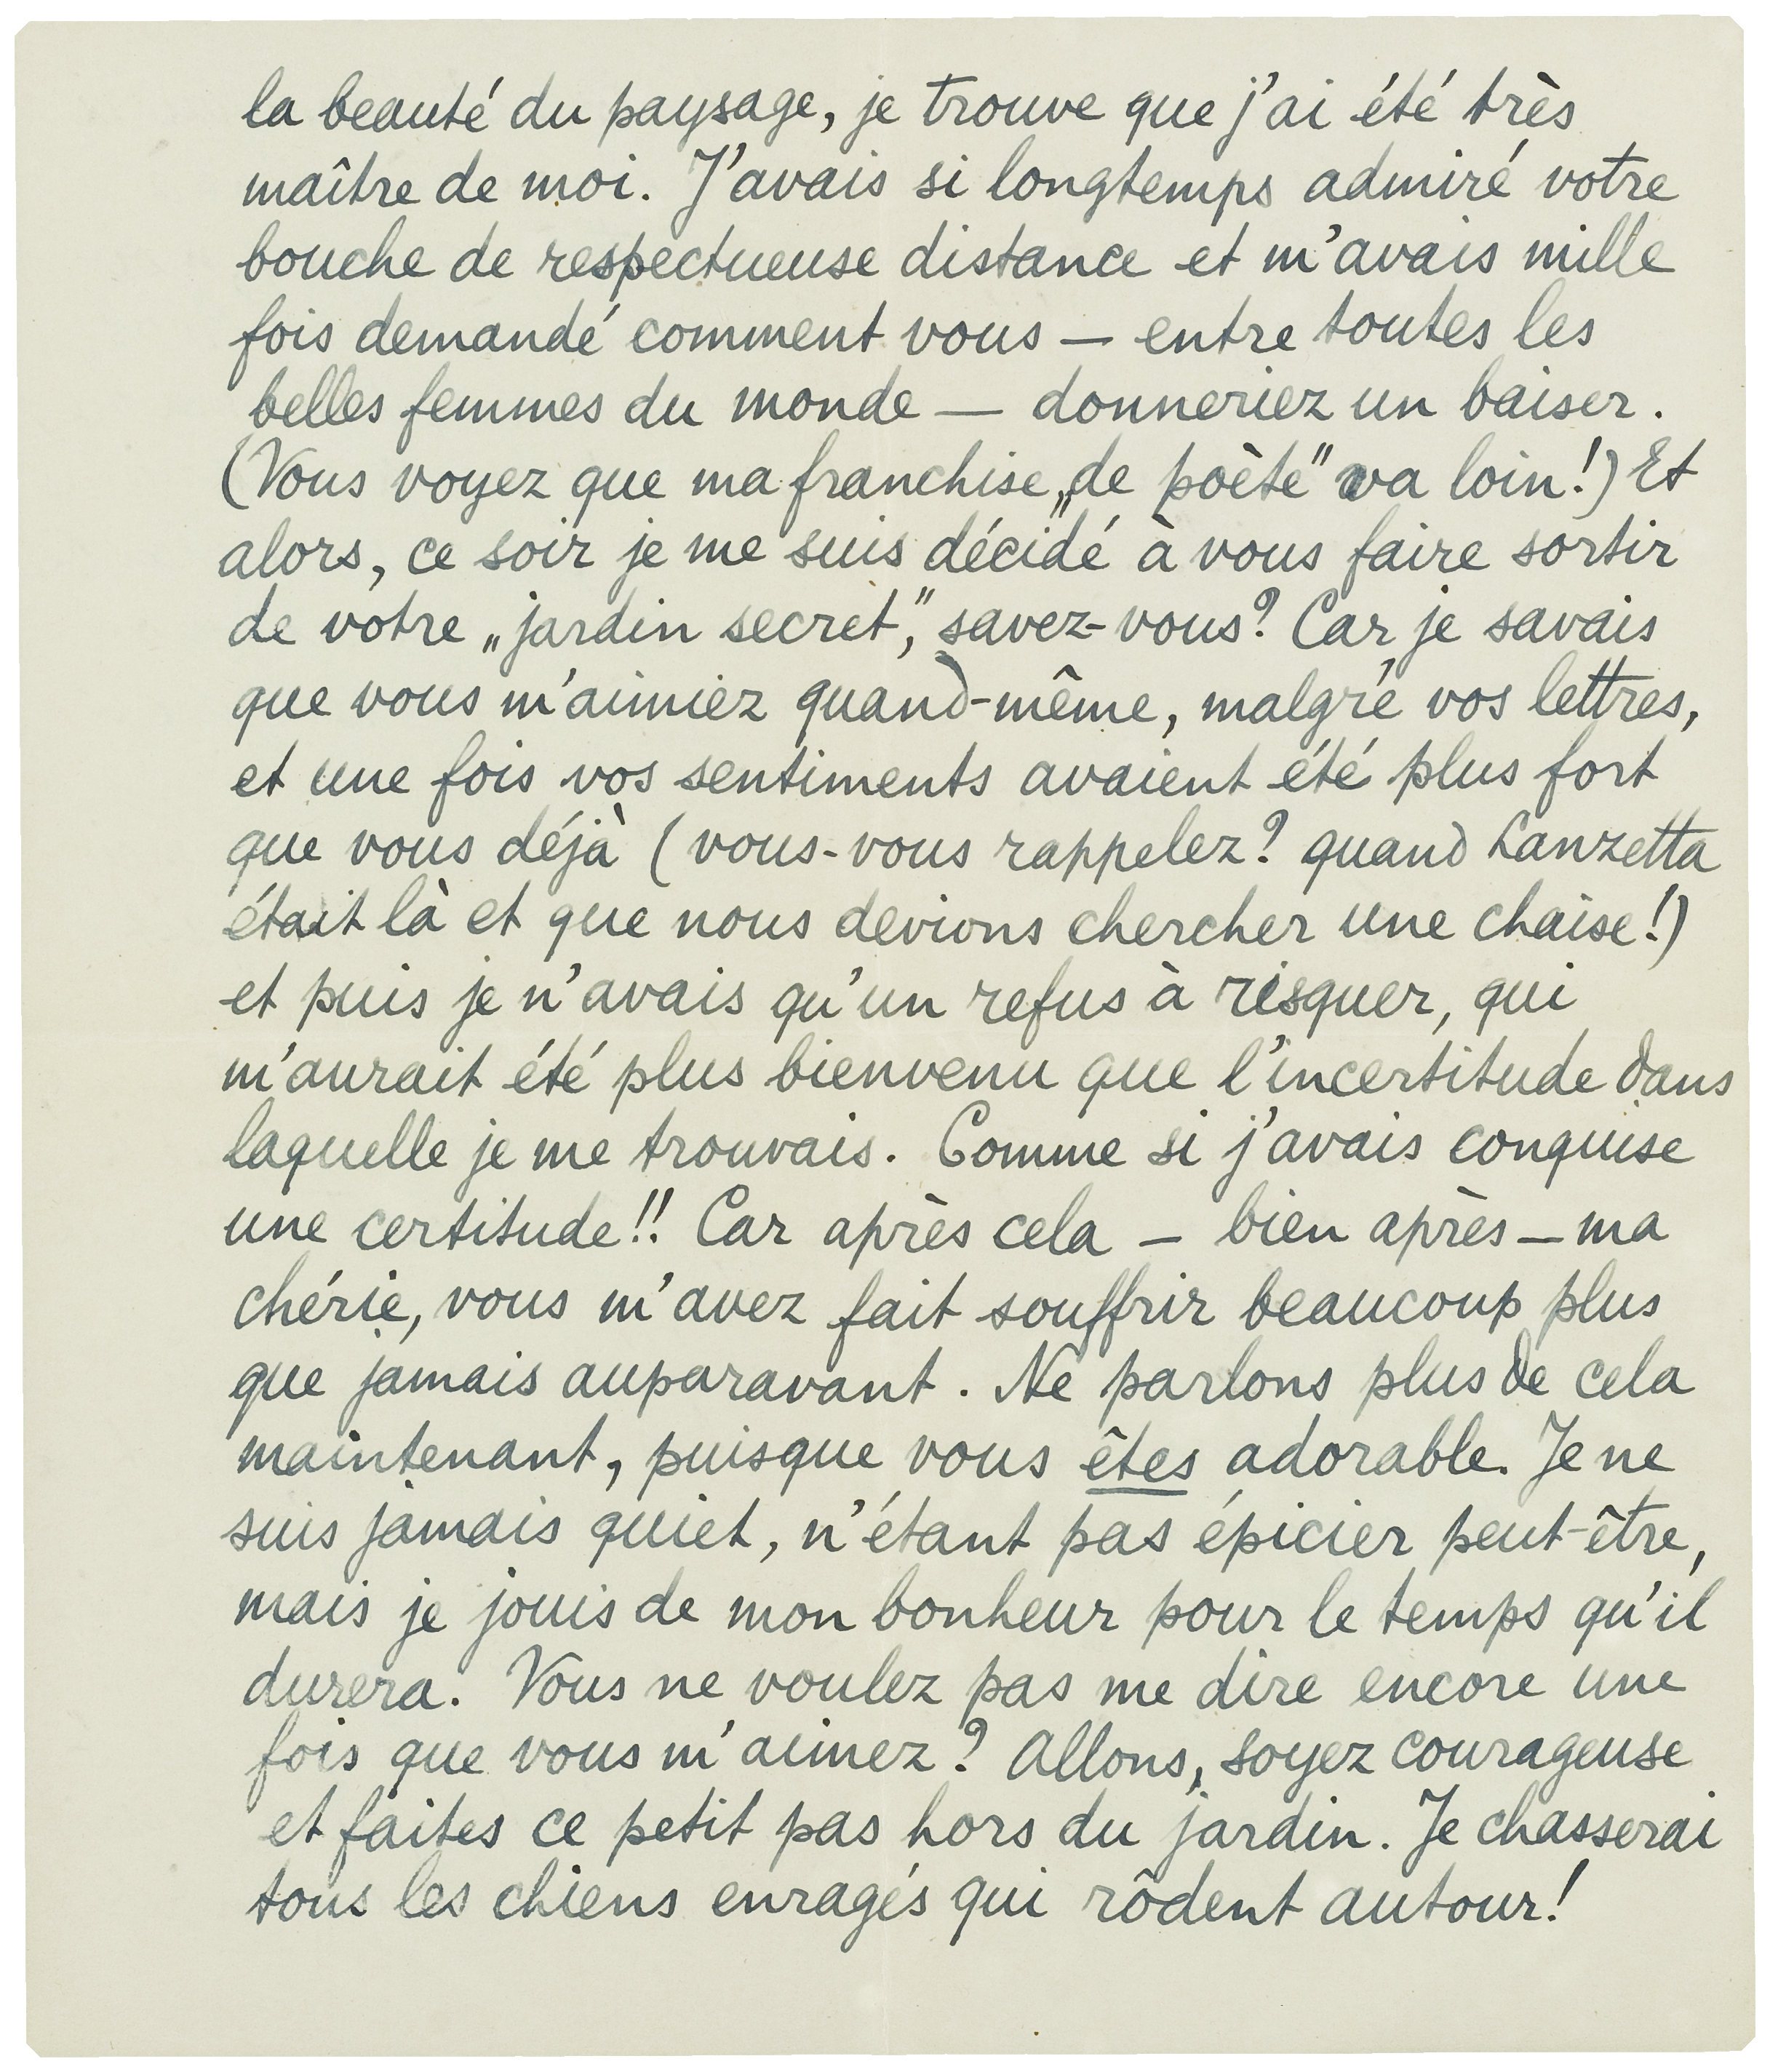 la beauté du paysage, je trouve que j'ai été très
maître de moi. J'avais si longtemps admiré votre
bouche de respectueuse distance et m'avais mille
fois demandé comment vous — entre toutes les
belles femmes du monde — donneriez un baiser.
(Vous voyez que ma franchise „de poète" va loin!) Et
alors, ce soir je me suis décidé à vous faire sortir
de votre „jardin secret", savez-vous? Car je savais
que vous m'aimiez quand-même, malgré vos lettres,
et une fois vos sentiments avaient été plus fort
que vous déjà (vous-vous rappelez? quand Lanzetta
était là et que nous devions chercher une chaise!)
et puis je n'avais qu'un refus à risquer, qui
m'aurait été plus bienvenu que l'incertitude dans
laquelle je me trouvais. Comme si j'avais conquise
une certitude!! Car après cela — bien après — ma
chérie, vous m'avez fait souffrir beaucoup plus
que jamais auparavant. Ne parlons plus de cela
maintenant, puisque vous êtes adorable. Je ne
suis jamais quiet, n'étant pas épicier peut-être,
mais je jouis de mon bonheur pour le temps qu'il
durera. Vous ne voulez pas me dire encore une
fois que vous m'aimez? Allons, soyez courageuse
et faites ce petit pas hors du jardin. Je chasserai
tous les chiens enragés qui rôdent autour!